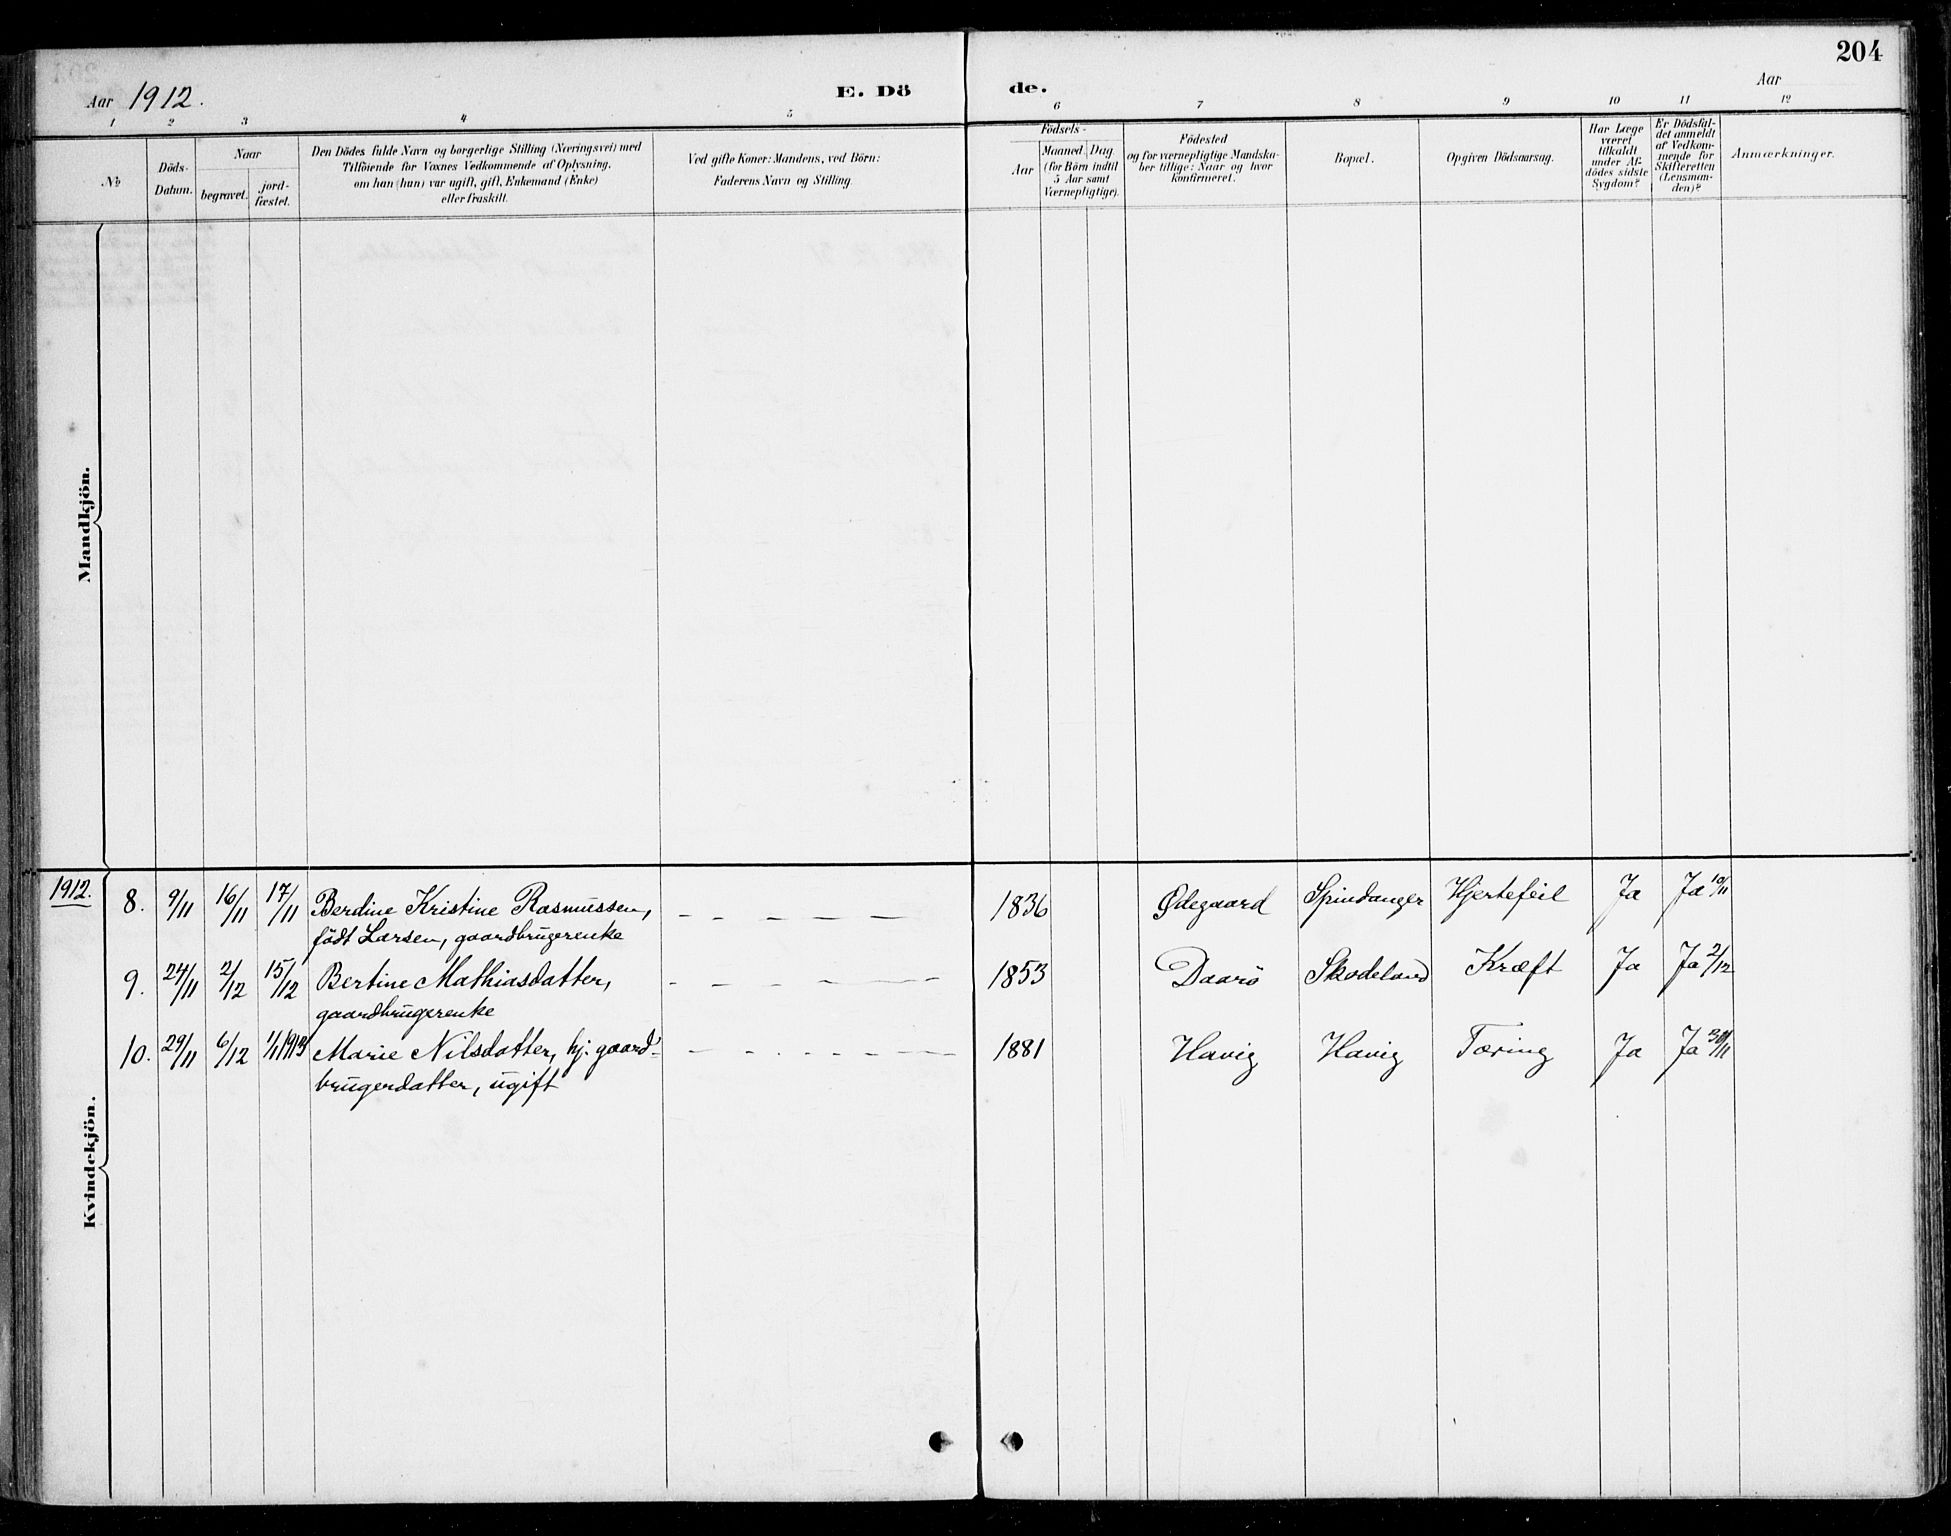 204
Aar 1912. E. Dö de. Aar
1 2 3 4 5 6 7 8 9 10 11 12
No
Döds-
Datum.
Naar
begravet.
jord-
fæstet.
Den Dödes fulde Navn og borgerlige Stilling (Næringsvei) med
Tilföiende for Voxnes Vedkommende af Oplysning,
om han (hun) var ugift, gift, Enkemand (Enke)
eller fraskilt.
Ved gifte Koner: Mandens, ved Börn:
Faderens Navn og Stilling.
Födsels-
Aar
Maaned. Dag.
(for Börn indtil
5 Aar samt
Værnepligtige).
Födested
og for værnepligtige Mandska-
ber tillige: Naar og hvor
konfirmeret.
Bopæl.
Opgiven Dödsaarsag.
Har Læge
været
tilkaldt
under Af-
dödes sidste
Sygdom?
Er Dödsfal-
det anmeldt
af Vedkom-
mende for
Skifteretten
(Lensman-
den)?
Anmærkninger.
Mandkjön.
1912. 8. 9/11 16/11 17/11 Berdine Kristine Rasmussen, 1836 Ødegaard Spindanger Hjertefeil Ja Ja 10/11
født Larsen, gaardbrugerenke
9. 24/11 2/12 15/12 Bertine Mathiasdatter, 1853 Daarö Skodeland Kræft Ja Ja 2/12
gaardbrugerenke
10. 29/11 6/12 1/1 1913 Marie Nilsdatter, hj. gaard- 1881 Havig Havig Tæring Ja Ja 30/11
brugerdatter, ugift
Kvindekjön.